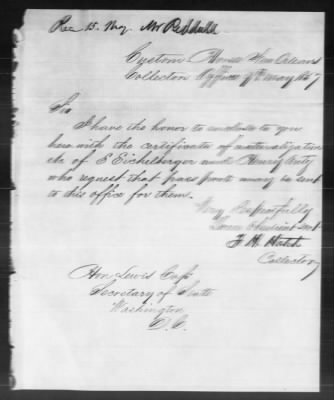 Rec 15. May. Mr
Custom House New Orleans
Collectors Office 8 May
Sir
I have the honor to enclose to you
herewith the certificates of naturalization
etc. of E Eichelberger and Henry
who request that passports may be sent
to this office for them.
Very Respectfully
Your obedient Svt
F H Hatch
Collector
Hon Lewis Cass
Secretary of State
Washington
D. C.